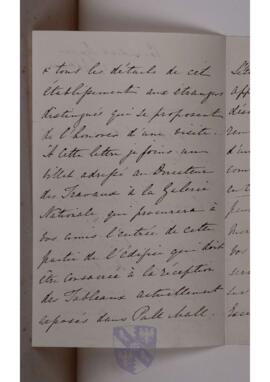 & tous les détails de cet
etablissement aux etrangers
distingués qui se proposent
de l'honorer d'une visite.
A Cette lettre je joins un
billet adressé au Directeur
des Travaux à la Galerie
Nationale, qui procurera à
vos amis l'entrée de cette
partie de l'Edifice qui doit
être consacrée à la réception
des Tableaux actuellement
exposés dans Pall Mall.